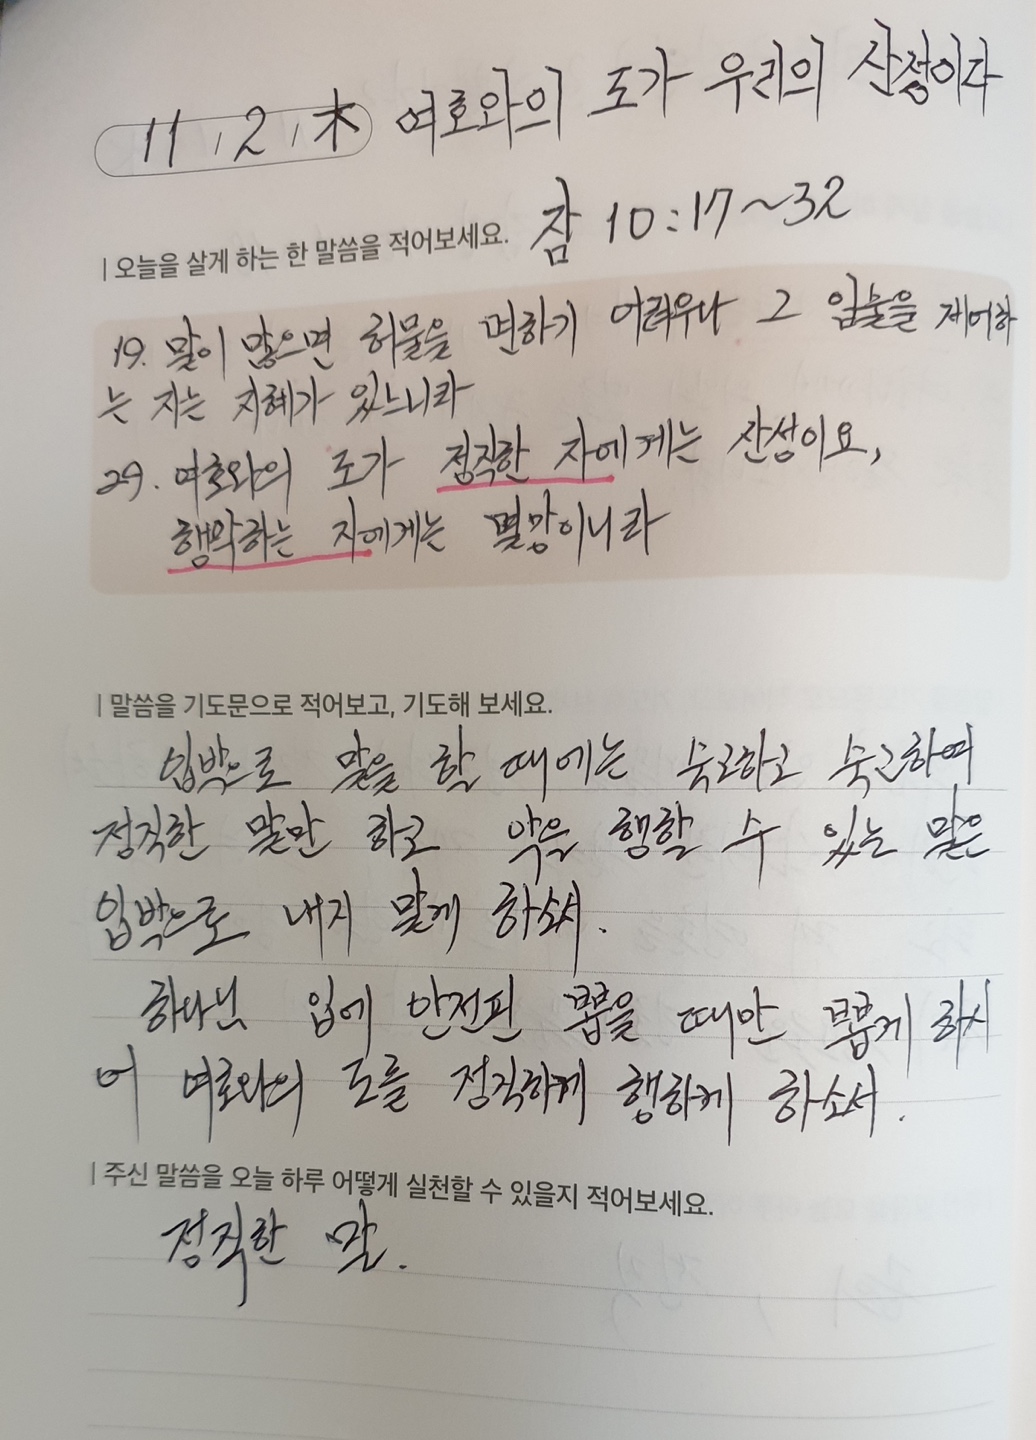 11, 2, 木 여호와의 도가 우리의 산성이다
잠 10:17~32
| 오늘을 살게 하는 한 말씀을 적어보세요.
19. 말이 많으면 허물을 면하기 어려우나 그 입술을 제어하
는 자는 지혜가 있느니라
29. 여호와의 도가 정직한 자에게는 산성이요,
행악하는 자에게는 멸망이니라
| 말씀을 기도문으로 적어보고, 기도해 보세요.
입밖으로 말을 할 때에는 숙고하고 숙고하여
정직한 말만 하고 악을 행할 수 있는 말은
입밖으로 내지 말게 하소서.
하나님 입에 안전핀 뽑을 때만 뽑게 하시
어 여호와의 도를 정직하게 행하게 하소서.
| 주신 말씀을 오늘 하루 어떻게 실천할 수 있을지 적어보세요.
정직한 말.